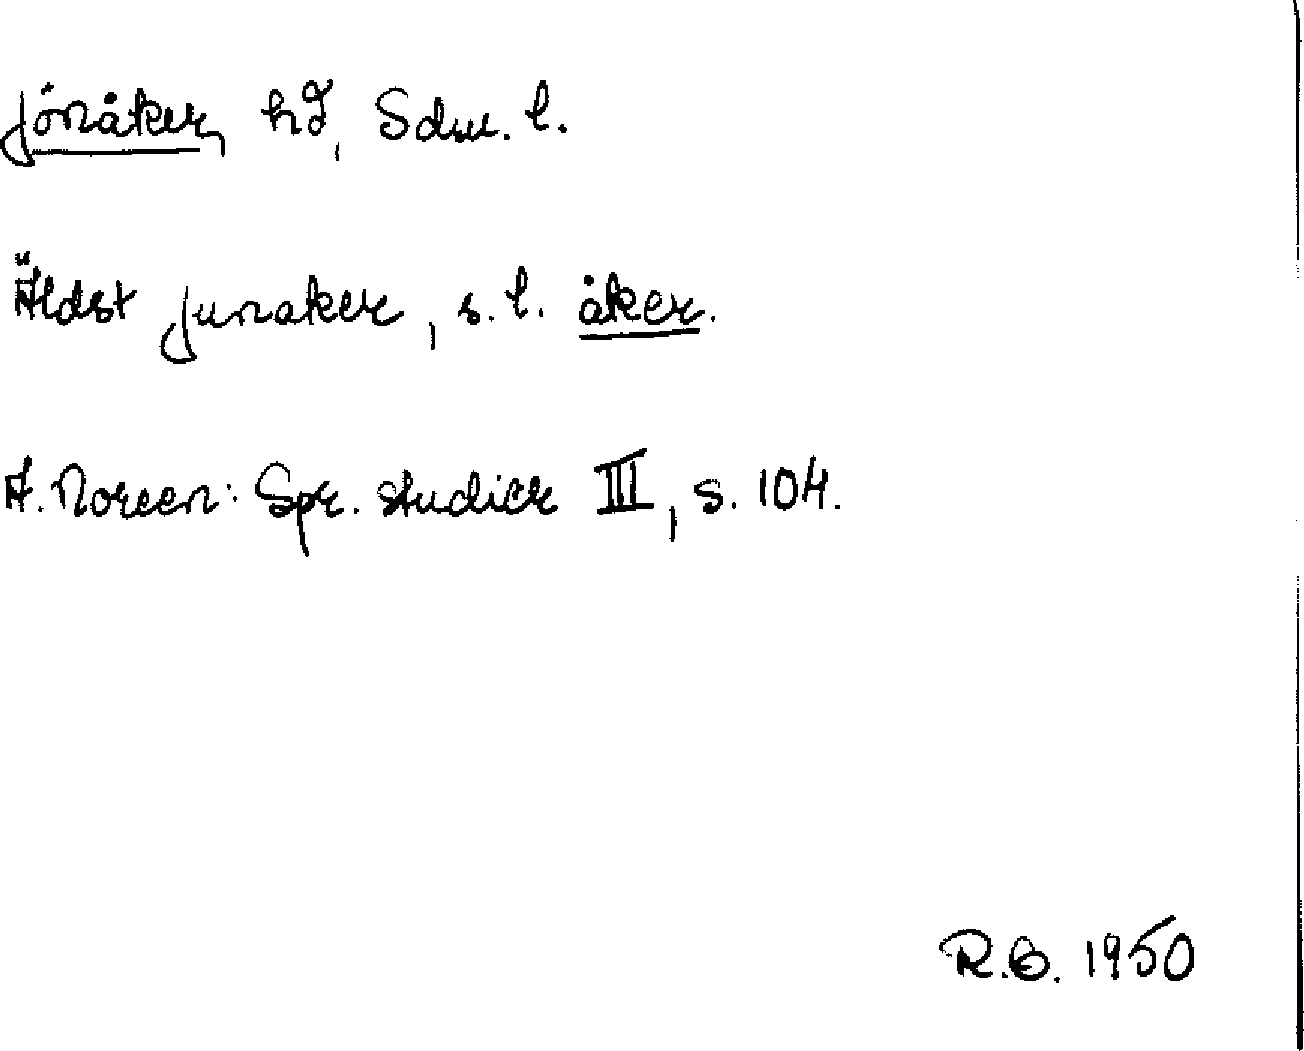 Jönåker, hd, Sdm. l.
Äldst Junaker, s. l. åker.
A. Noreen: Spr. studier III, s. 104.
R.G. 1950